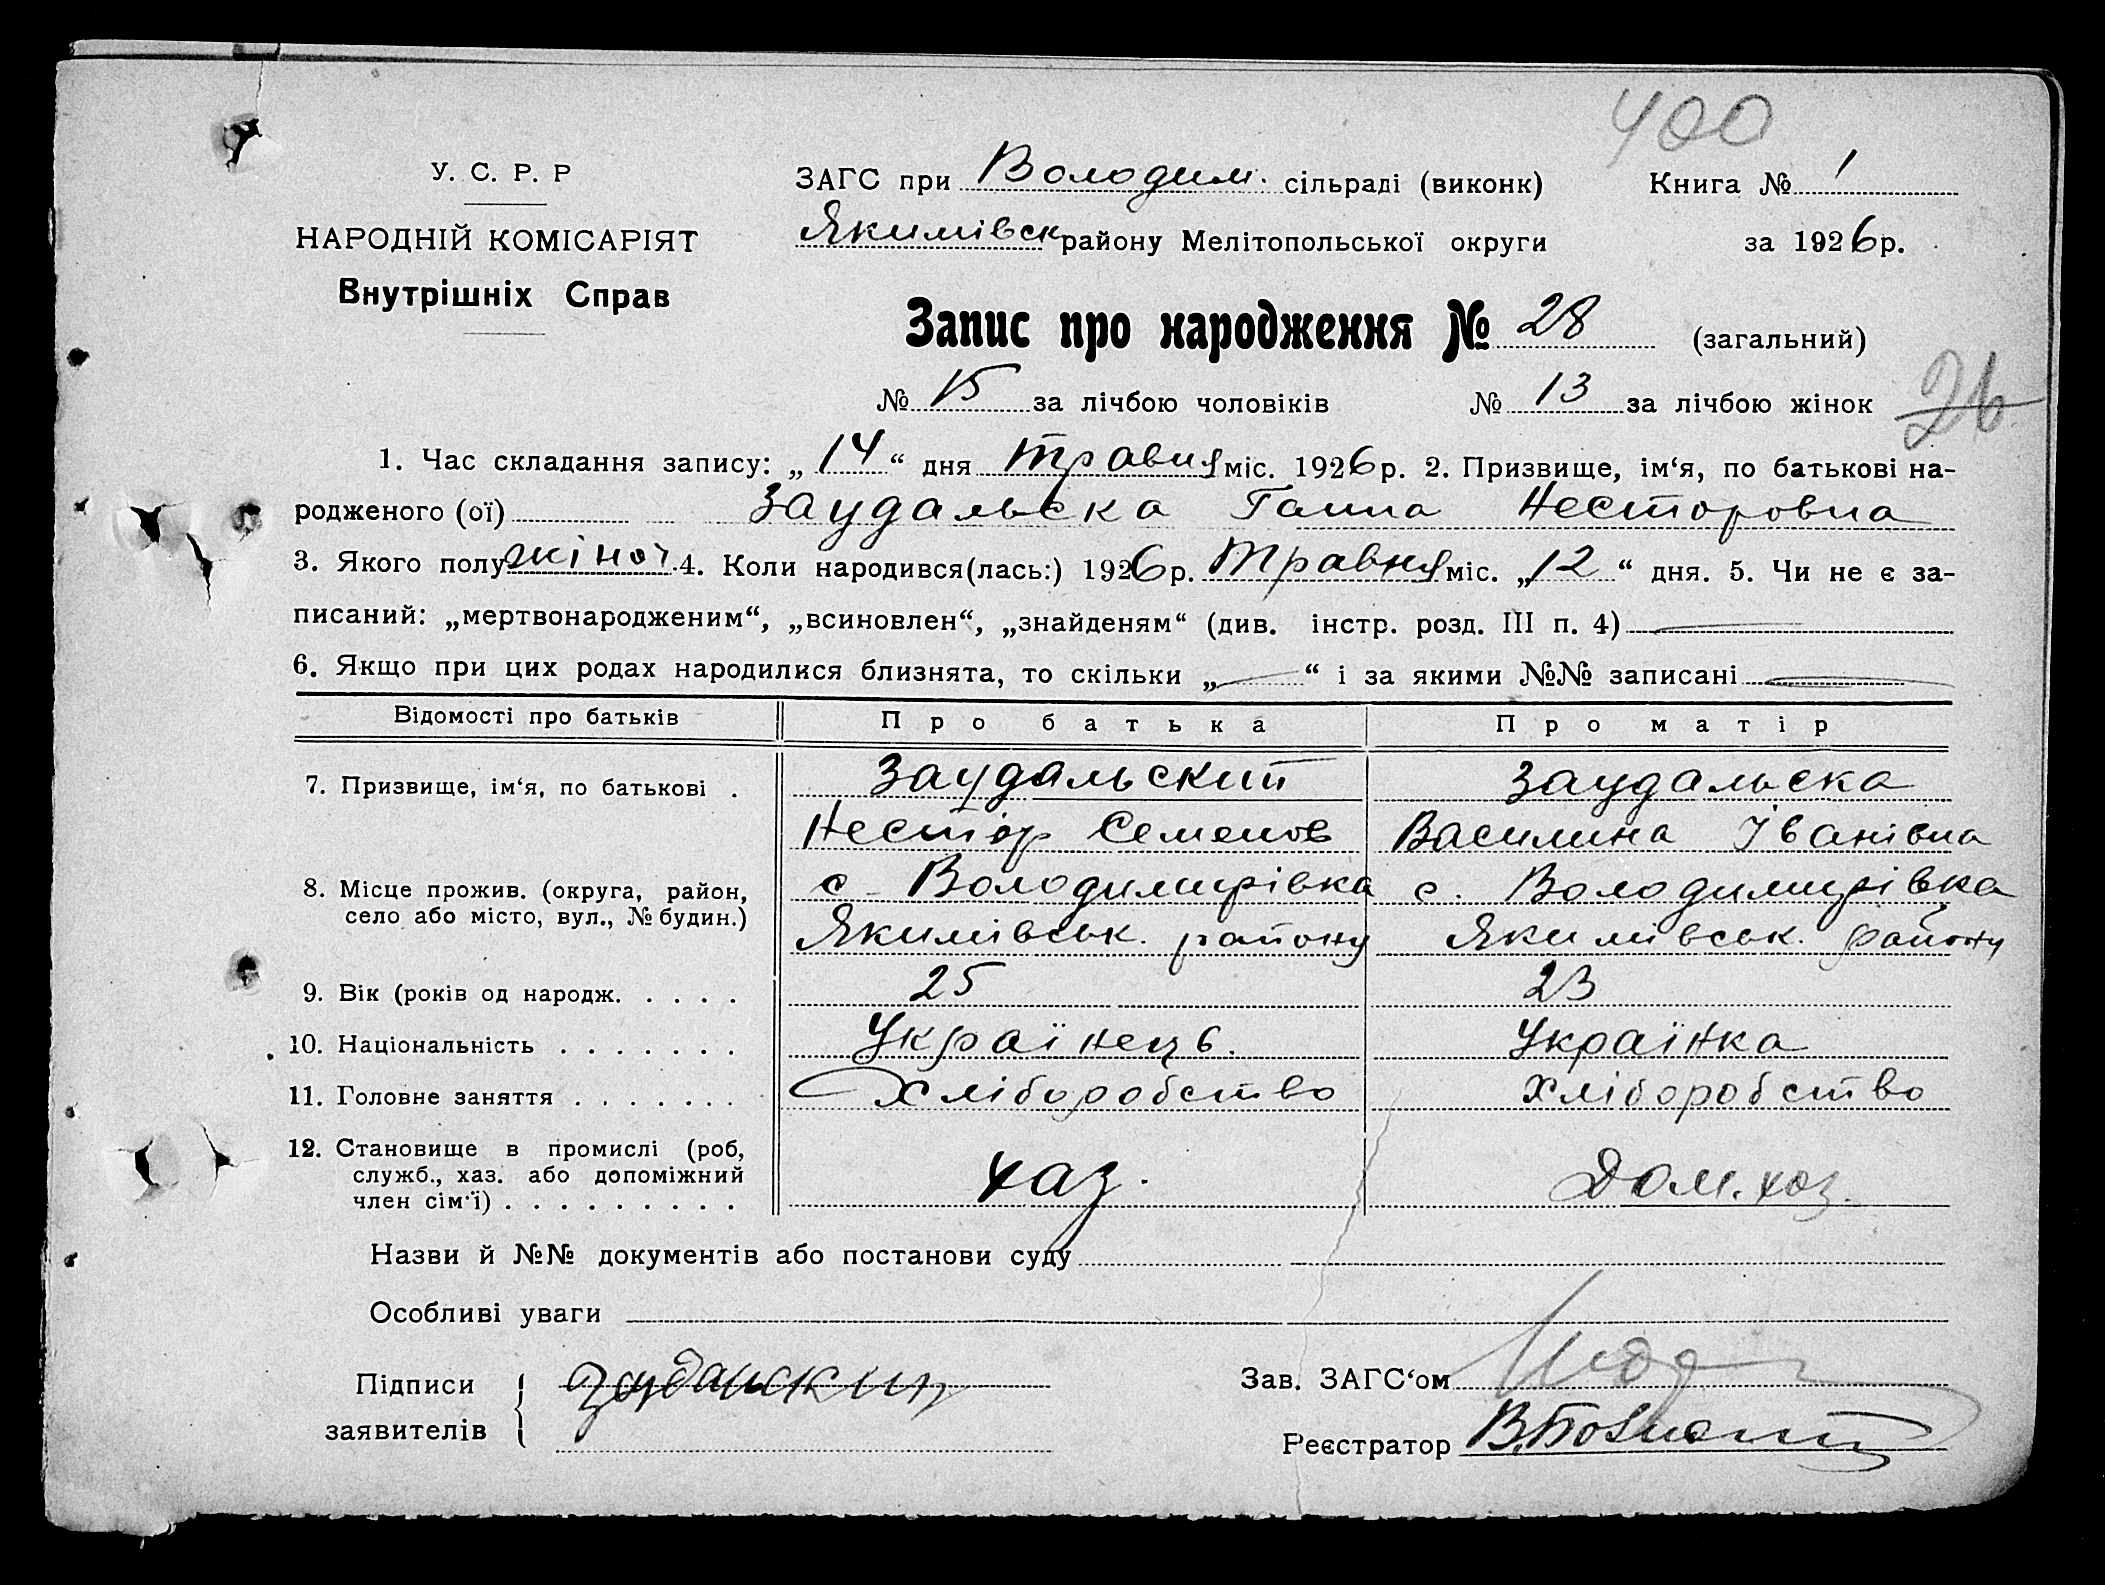 400
У. С. Р. Р
НАРОДНІЙ КОМІСАРІЯТ
Внутрішніх Справ
ЗАГС при Володим. сільраді (виконк) Книга № 1
Якимівск району Мелітопольської округи за 1926 р.
Запис про народження № 28 (загальний)
№ 15 за лічбою чоловіків № 13 за лічбою жінок 26
1. Час складання запису: „14“ дня травня міс. 1926 р. 2. Призвище, ім‘я, по батькові на-
родженого (ої) Заудальска Ганна Несторовна
3. Якого полу жіноч. 4. Коли народився(лась:) 1926 р. Травня міс. „12“ дня. 5. Чи не є за-
писаний: „мертвонародженим“, „всиновлен“, „знайденям“ (див. інстр. розд. III п. 4)
6. Якщо при цих родах народилися близнята, то скільки „—“ і за якими №№ записані —
Відомості про батьків Про батька Про матір
7. Призвище, ім‘я, по батькові . Заудальский Заудальска
Нестіор Семенов Василина Іванівна
8. Місце прожив. (округа, район, с - Володимирівка с. Володимирівка
село або місто, вул., № будин.) Якимівськ. району Якимівськ. району
9. Вік (років од народж. . . . . 25 23
10. Національність . . . . . . . Українець. Українка
11. Головне заняття . . . . . . . Хліборобство Хліборобство
12. Становище в промислі (роб,
служб., хаз. або допоміжний хаз. Дом. хаз.
член сім‘ї) . . . . . . . . .
Назви й №№ документів або постанови суду
Особливі уваги
Підписи Заудальский Зав. ЗАГС‘ом
заявителів Реєстратор